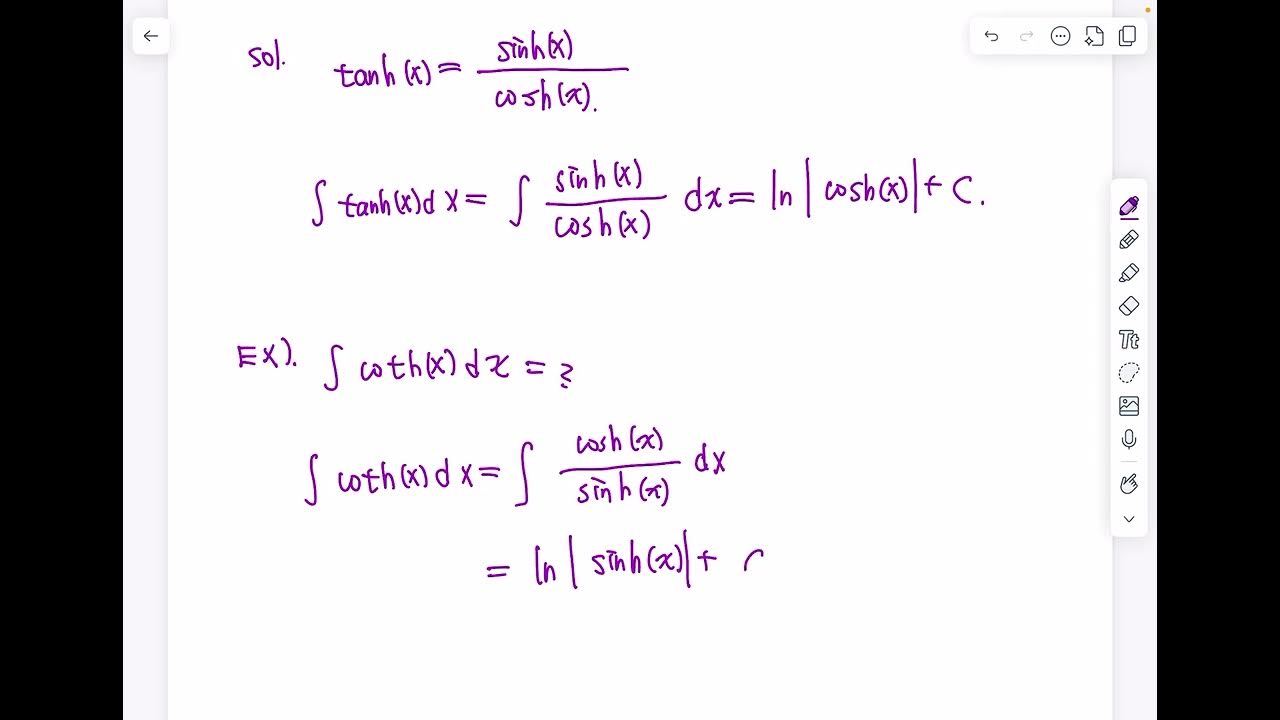 sol. tanh(x) = sinh(x) / cosh(x).
∫ tanh(x) d x = ∫ sinh(x) / cosh(x) dx = ln | cosh(x)| + C.
EX). ∫ coth(x) dx = ?
∫ coth(x) d x = ∫ cosh(x) / sinh(x) dx
= ln | sinh(x)| +
Tt